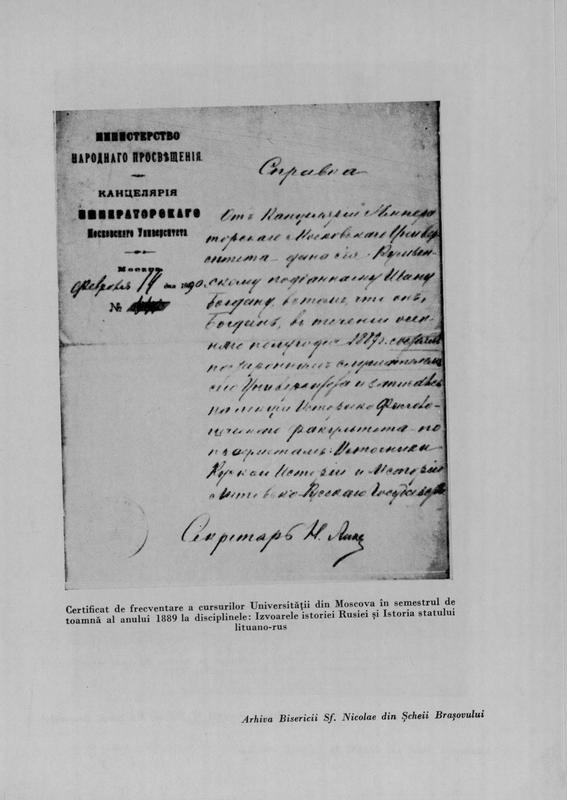 МИНИСТЕРСТВО
НАРОДНАГО ПРОСВѢЩЕНІЯ.
КАНЦЕЛЯРІЯ
ИМПЕРАТОРСКАГО
Московскаго Университета
Москва,
Февраля 14 дня 1890.
№
Справка
Отъ Канцеляріи Импера
торскаго Московскаго Универ
ситета дана сія Румын-
скому подданному Ивану
Богдану, въ томъ, что онъ,
Богданъ, въ теченіи осен-
няго полугодія 1889 г. состоялъ
постороннимъ слушателемъ
сего Университета и записанъ
на лекціи Историко-Филоло-
гическаго факультета по
предметамъ: Источники
Русской Исторіи и Исторія
Литовско-Русскаго Государства
Секретарь Н.
Certificat de frecventare a cursurilor Universității din Moscova în semestrul de
toamnă al anului 1889 la disciplinele: Izvoarele istoriei Rusiei și Istoria statului
lituano-rus
Arhiva Bisericii Sf. Nicolae din Șcheii Brașovului